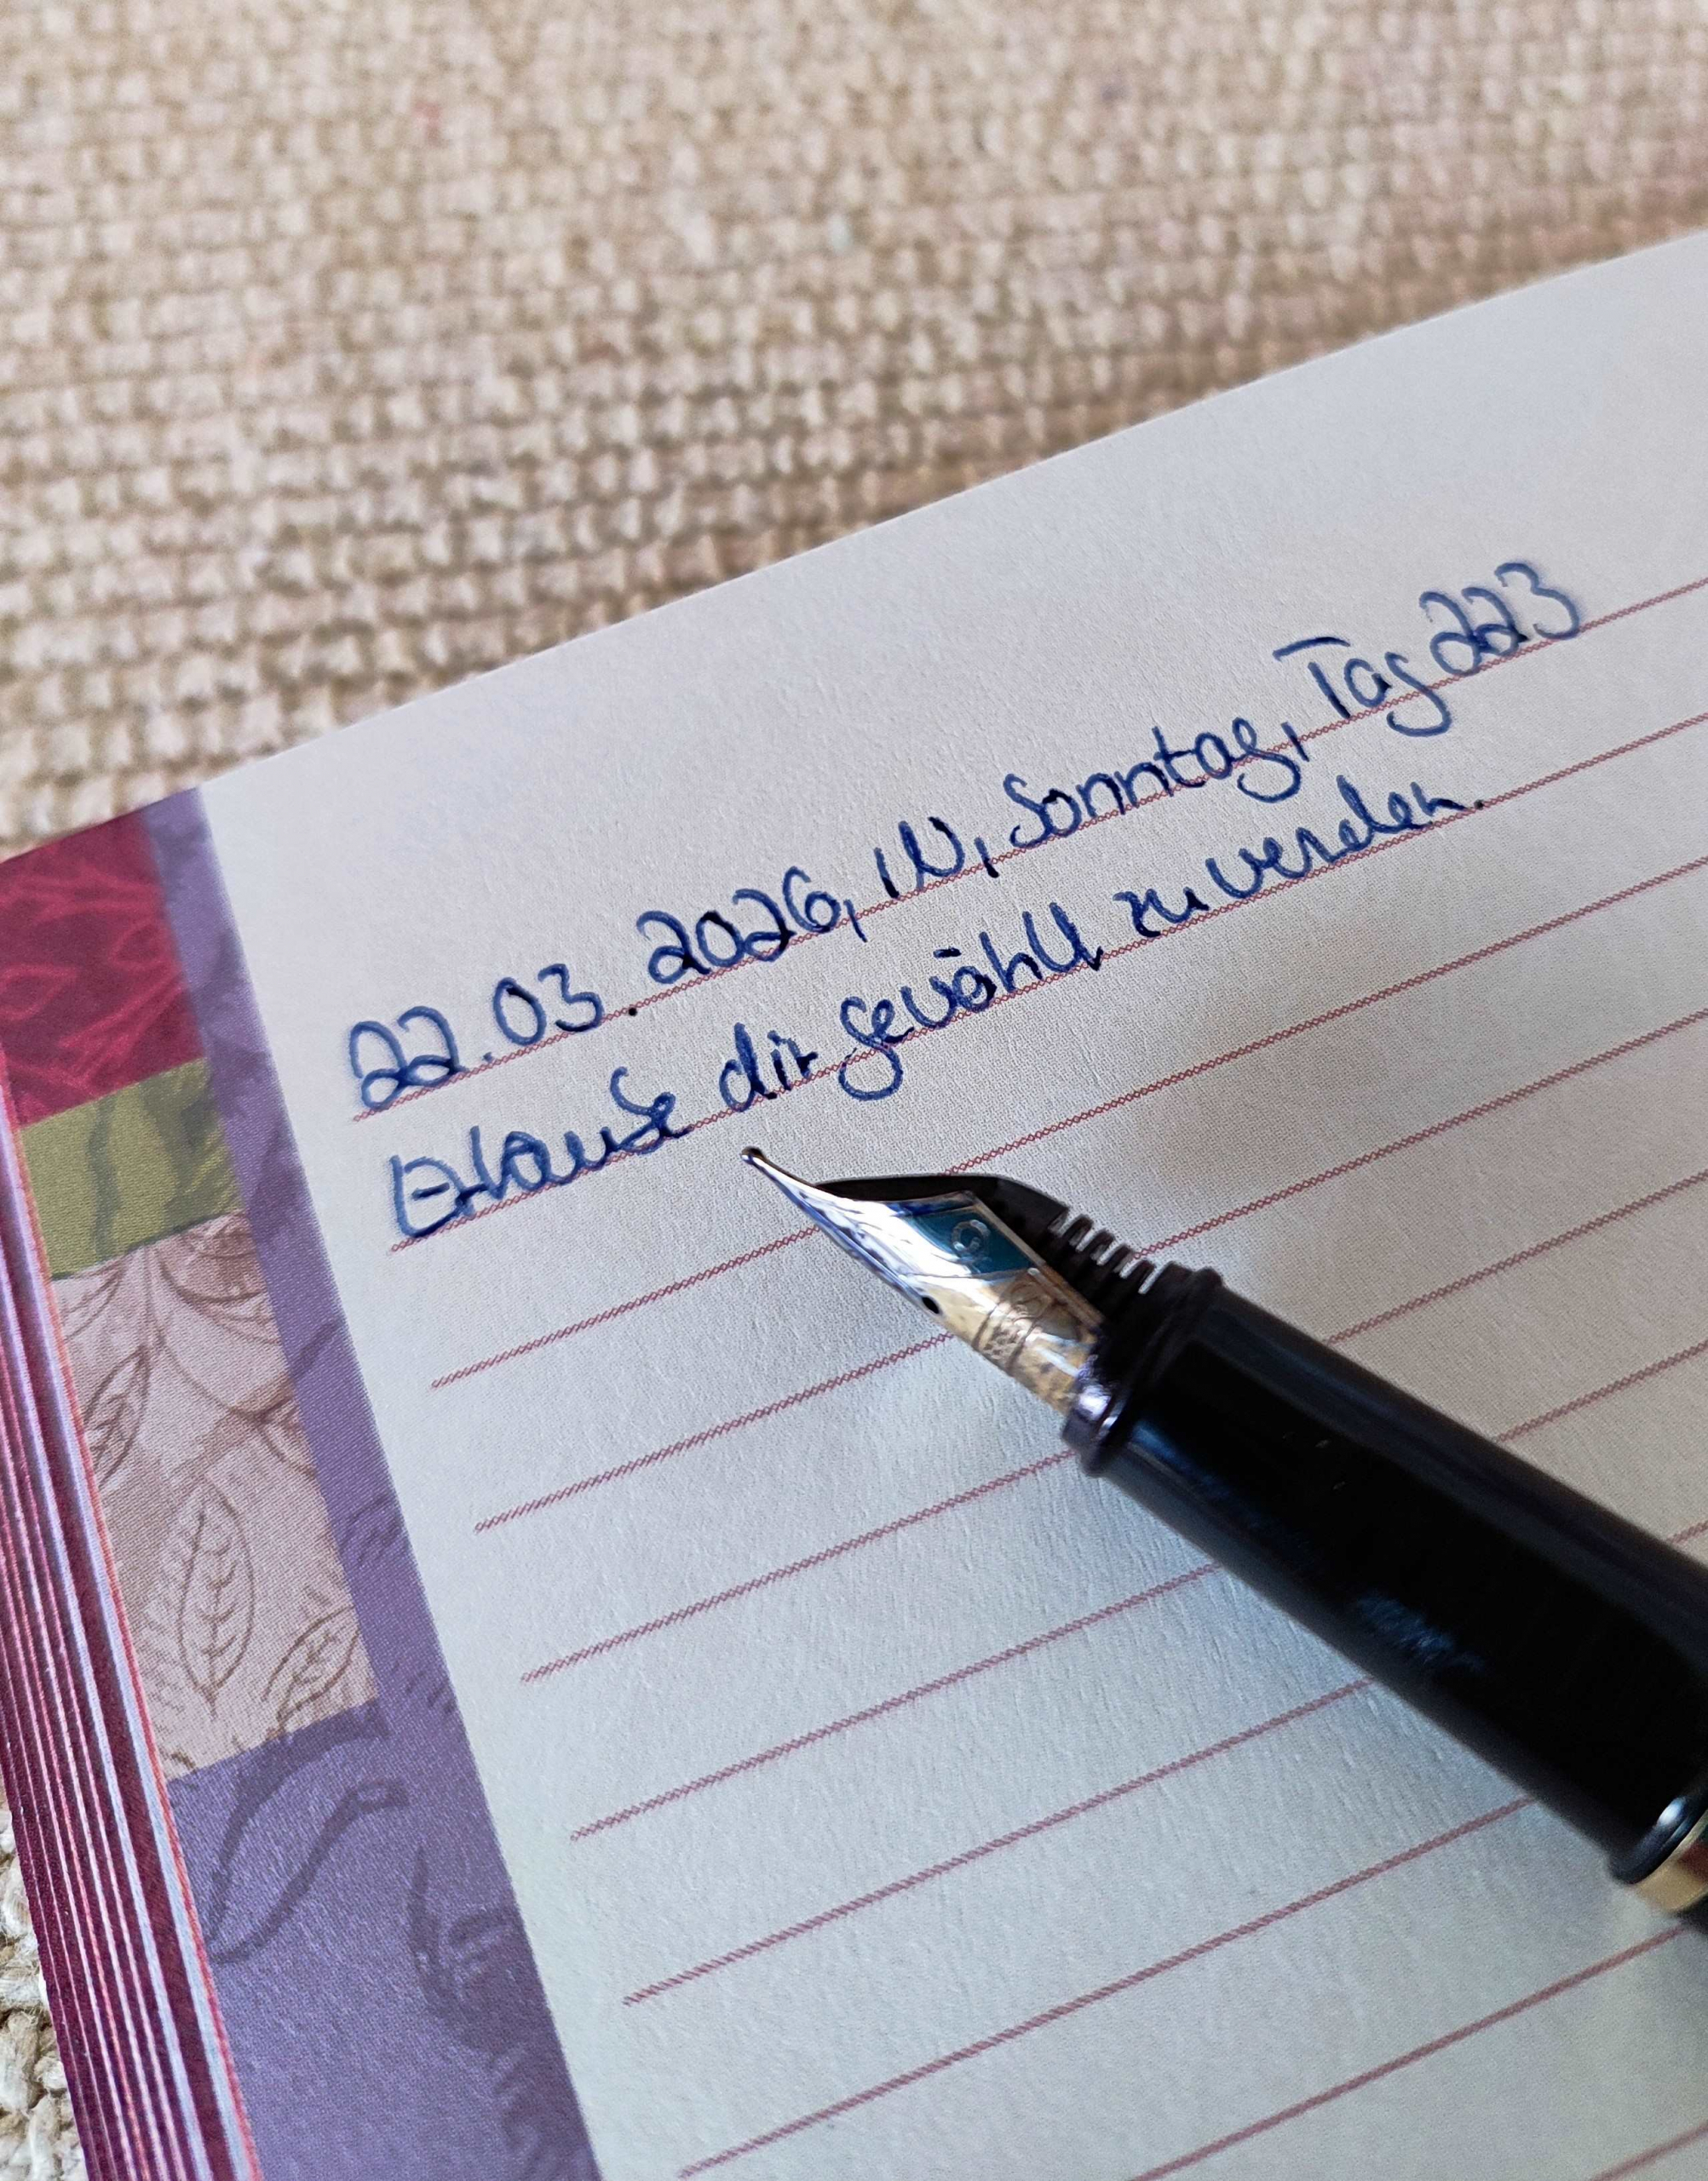 22.03.2026, IN, Sonntag, Tag 223
Erlaube dir gewählt zu werden.